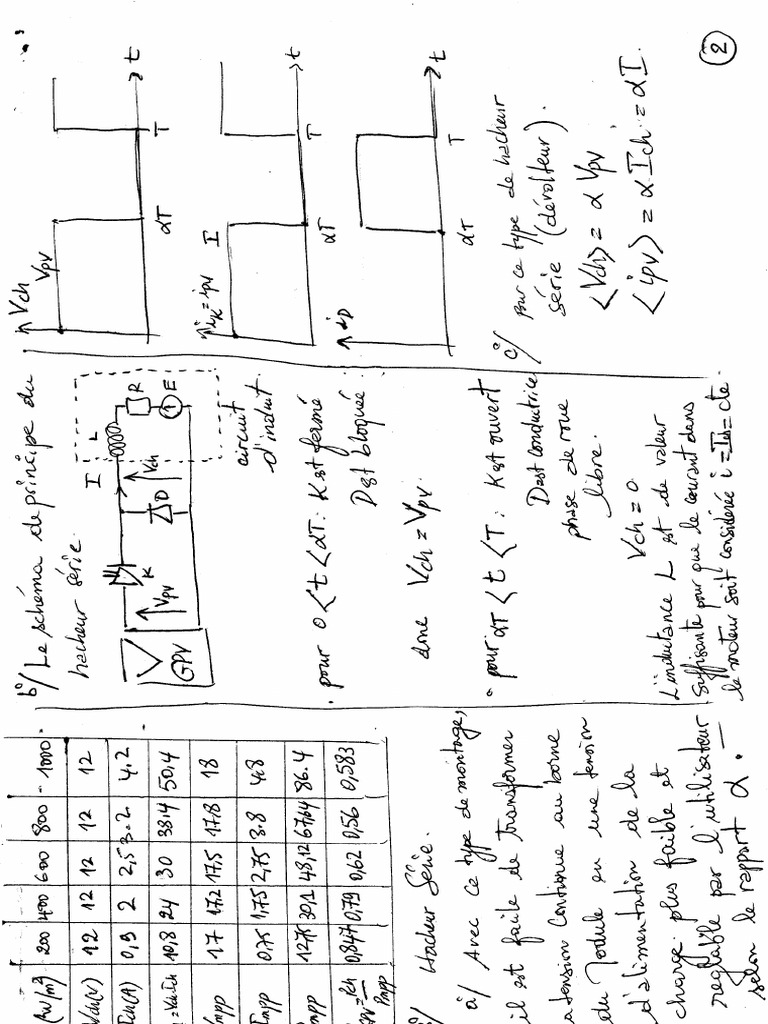 (W/m²) 200 400 600 800 1000
Vch(V) 12 12 12 12 12
Ich(A) 0,9 2 2,5 3.2 4.2
= Vch Ich 10,8 24 30 38.4 50.4
Vmpp 17 17,2 17,5 17,8 18
Impp 0,75 1,75 2,75 3.8 4.8
Pmpp 12,75 30,1 48,12 67,64 86.4
= Pch/Pmpp 0,847 0,79 0,62 0,56 0,583
Hacheur Série.
a°/ Avec ce type de montage,
il est facile de transformer
la tension Continue au borne
du Module en une tension
d'alimentation de la
charge plus faible et
reglable par l'utilisateur
selon le rapport α.
b°/ Le schéma de principe du
hacheur série.
GPV
Vpv
K
D
I
Vch
L
R
E
circuit
d'induit
• pour 0 < t < αT : K est fermé
D est bloquée
donc Vch = Vpv.
• pour αT < t < T : K est ouvert
D est conductrice
phase de roue
libre.
Vch = 0
L'inductance L est de valeur
Suffisante pour que le courant dans
le moteur soit considérée i = = cte.
Vch
Vpv
αT T t
iK = ipv
I
αT T t
iD
αT T t
c°/ pour ce type de hacheur
série (dévolteur).
<Vch> = α Vpv
<ipv> = α Ich = αI.
2